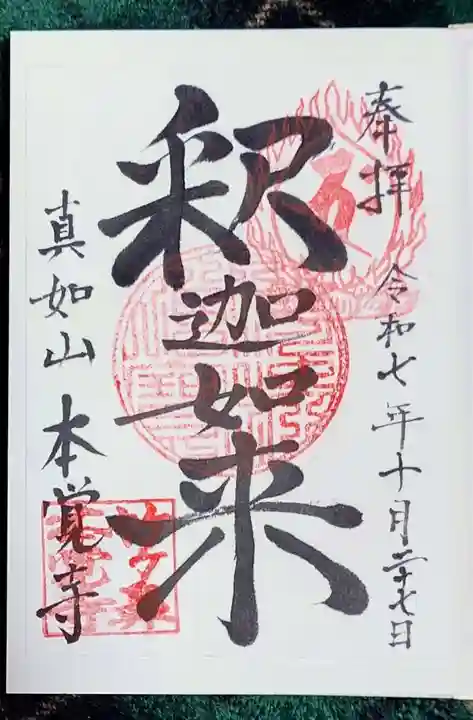 奉拝
令和七年十月二十七日
釈迦如来
真如山 本覚寺